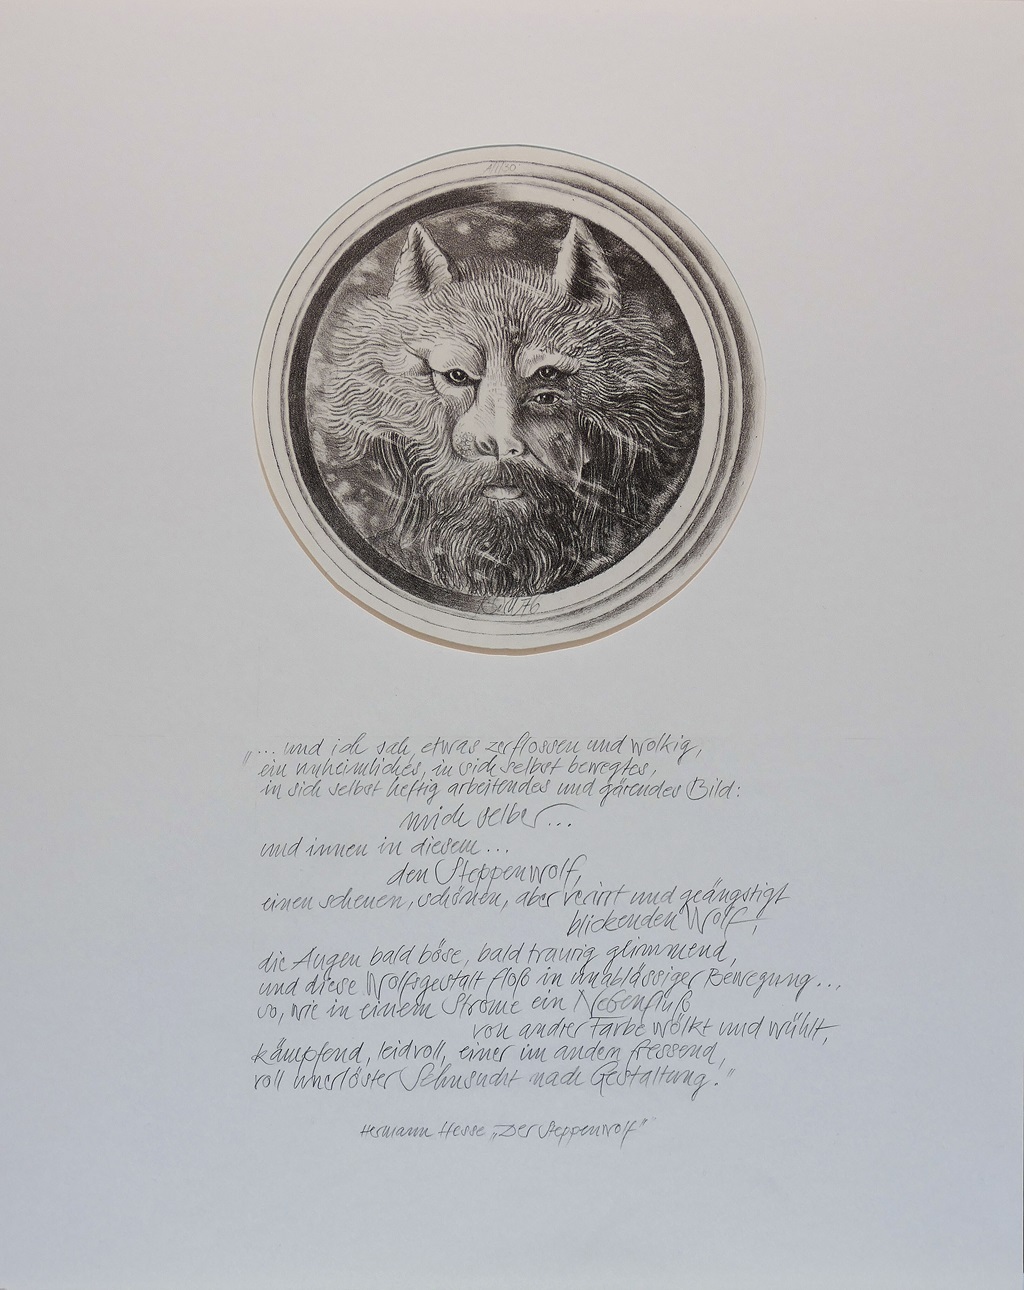 "... und ich sah, etwas zerflossen und wolkig,
ein unheimliches, in sich selbst bewegtes,
in sich selbst heftig arbeitendes und gärendes Bild:
mich selber...
und innen in diesem...
den Steppenwolf,
einen scheuen, schönen, aber verirrt und geängstigt
blickenden Wolf,
die Augen bald böse, bald traurig glimmend,
und diese Wolfsgestalt floß in unablässiger Bewegung...
so, wie in einem Strome ein Nebenfluß
von andrer Farbe wölkt und wühlt,
kämpfend, leidvoll, einer im andern fressend,
voll unerlöster Sehnsucht nach Gestaltung."
Hermann Hesse "Der Steppenwolf"